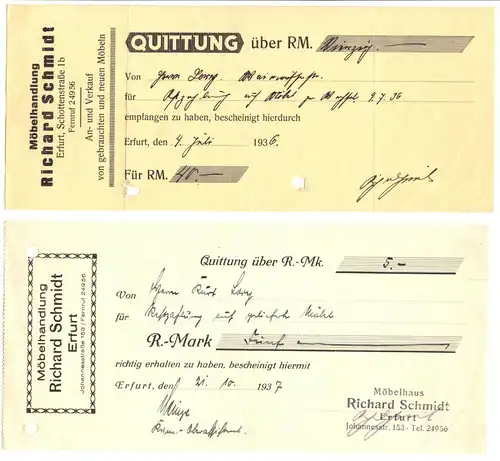 Möbelhandlung
Richard Schmidt
Erfurt, Schottenstraße 1b
Fernruf 24956
An- und Verkauf
von gebrauchten und neuen Möbeln
QUITTUNG über RM. Vierzig.—
Von Herrn
für Abzahlung auf Möbel 9.7.36
empfangen zu haben, bescheinigt hierdurch
Erfurt, den 4. Juli 1936.
Für RM. 40.—
Möbelhandlung
Richard Schmidt
Erfurt
Johannesstraße 153 / Fernruf 24956
Quittung über R.-Mk. 5.-
Von Herrn Kurt
für Restzahlung auf gelieferte Möbel
R.-Mark Fünf
richtig erhalten zu haben, bescheinigt hiermit
Erfurt, den 21. 10. 1937
Möbelhaus
Richard Schmidt
Erfurt
Johannesstr. 153 - Tel. 24956